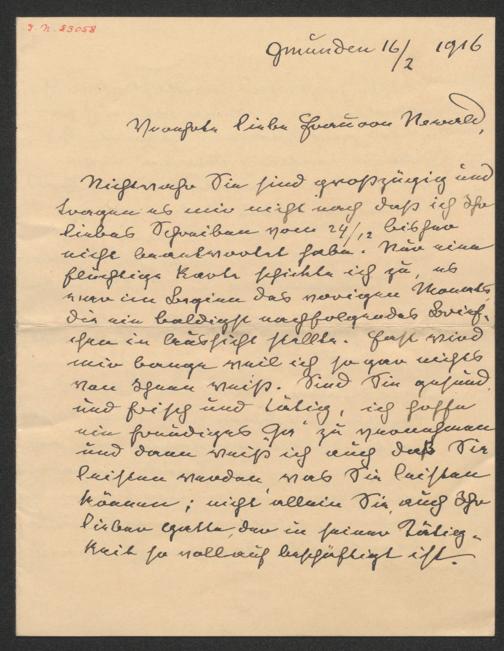 J. N. 83058
Gmunden 16/2 1916
Verehrte liebe Frau von Newald,
Nichtwahr Sie sind großzügig und
tragen es mir nicht nach daß ich Ihr
liebes Schreiben vom 24/12 bisher
nicht beantwortet habe. Nur eine
flüchtige Karte schickte ich zu, es
war im Beginn des vorigen Monats
die ein baldigst nachfolgendes Brief-
chen in Aussicht stellte. Fast wird
mir bange weil ich so gar nichts
von Ihnen weiß. Sind Sie gesund,
und frisch und tätig, ich hoffe
ein freudiges "Ja" zu vernehmen
und dann weiß ich auch daß Sie
leisten werden was Sie leisten
können; nicht allein Sie, auch Ihr
lieber Gatte, der in seiner Tätig-
keit so vollauf beschäftigt ist.